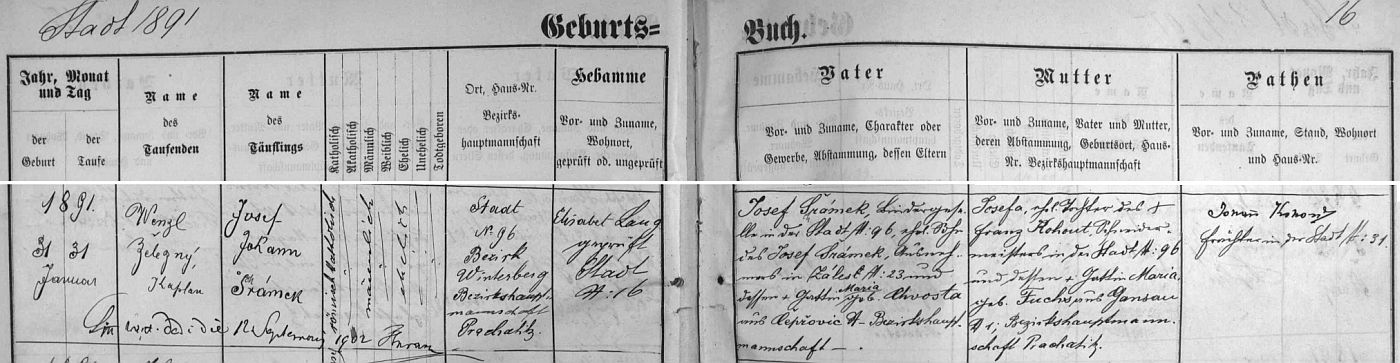 Stadt 1891
Geburts=
Buch.
16
Jahr, Monat
und Tag
der
Geburt
der
Taufe
Name
des
Taufenden
Name
des
Täuflings
Katholisch
Akatholisch
Männlich
Weiblich
Ehelich
Unehelich
Todtgeboren
Ort, Haus-Nr.
Bezirks-
hauptmannschaft
Hebamme
Vor- und Zuname,
Wohnort,
geprüft od. ungeprüft
Vater
Vor- und Zuname, Charakter oder
Gewerbe, Abstammung, dessen Eltern
Mutter
Vor- und Zuname, Vater und Mutter,
deren Abstammung, Geburtsort, Haus-
Nr. Bezirkshauptmannschaft
Pathen
Vor- und Zuname, Stand, Wohnort
und Haus-Nr.
1891.
31 31
Januar
Wenzl
Železný,
Kaplan
Josef
Johann
Šrámek
römisch katholisch
männlich
ehelich
Stadt
N. 96
Bezirk
Winterberg
Bezirkshaupt-
mannschaft
Prachatitz.
Elisabet Lang
geprüft
Stadt
N: 16
Josef Šrámek, Bindergese-
lle in der Stadt N: 96, ehel. Sohn
des Josef Šrámek, Ausneh-
mers in Zálesl N: 23, und
dessen + Gattin Maria geb. Chvosta
aus Čepřovic Bezirkshaupt-
mannschaft —.
Josefa, ehel. Tochter des +
Franz Kohout Schneider-
meisters in der Stadt N: 96
und dessen + Gattin Maria,
geb. Fuchs aus Gansau
N: 1; Bezirkshauptmann-
schaft Prachatitz.
in der Stadt N: 31
12 September 1902